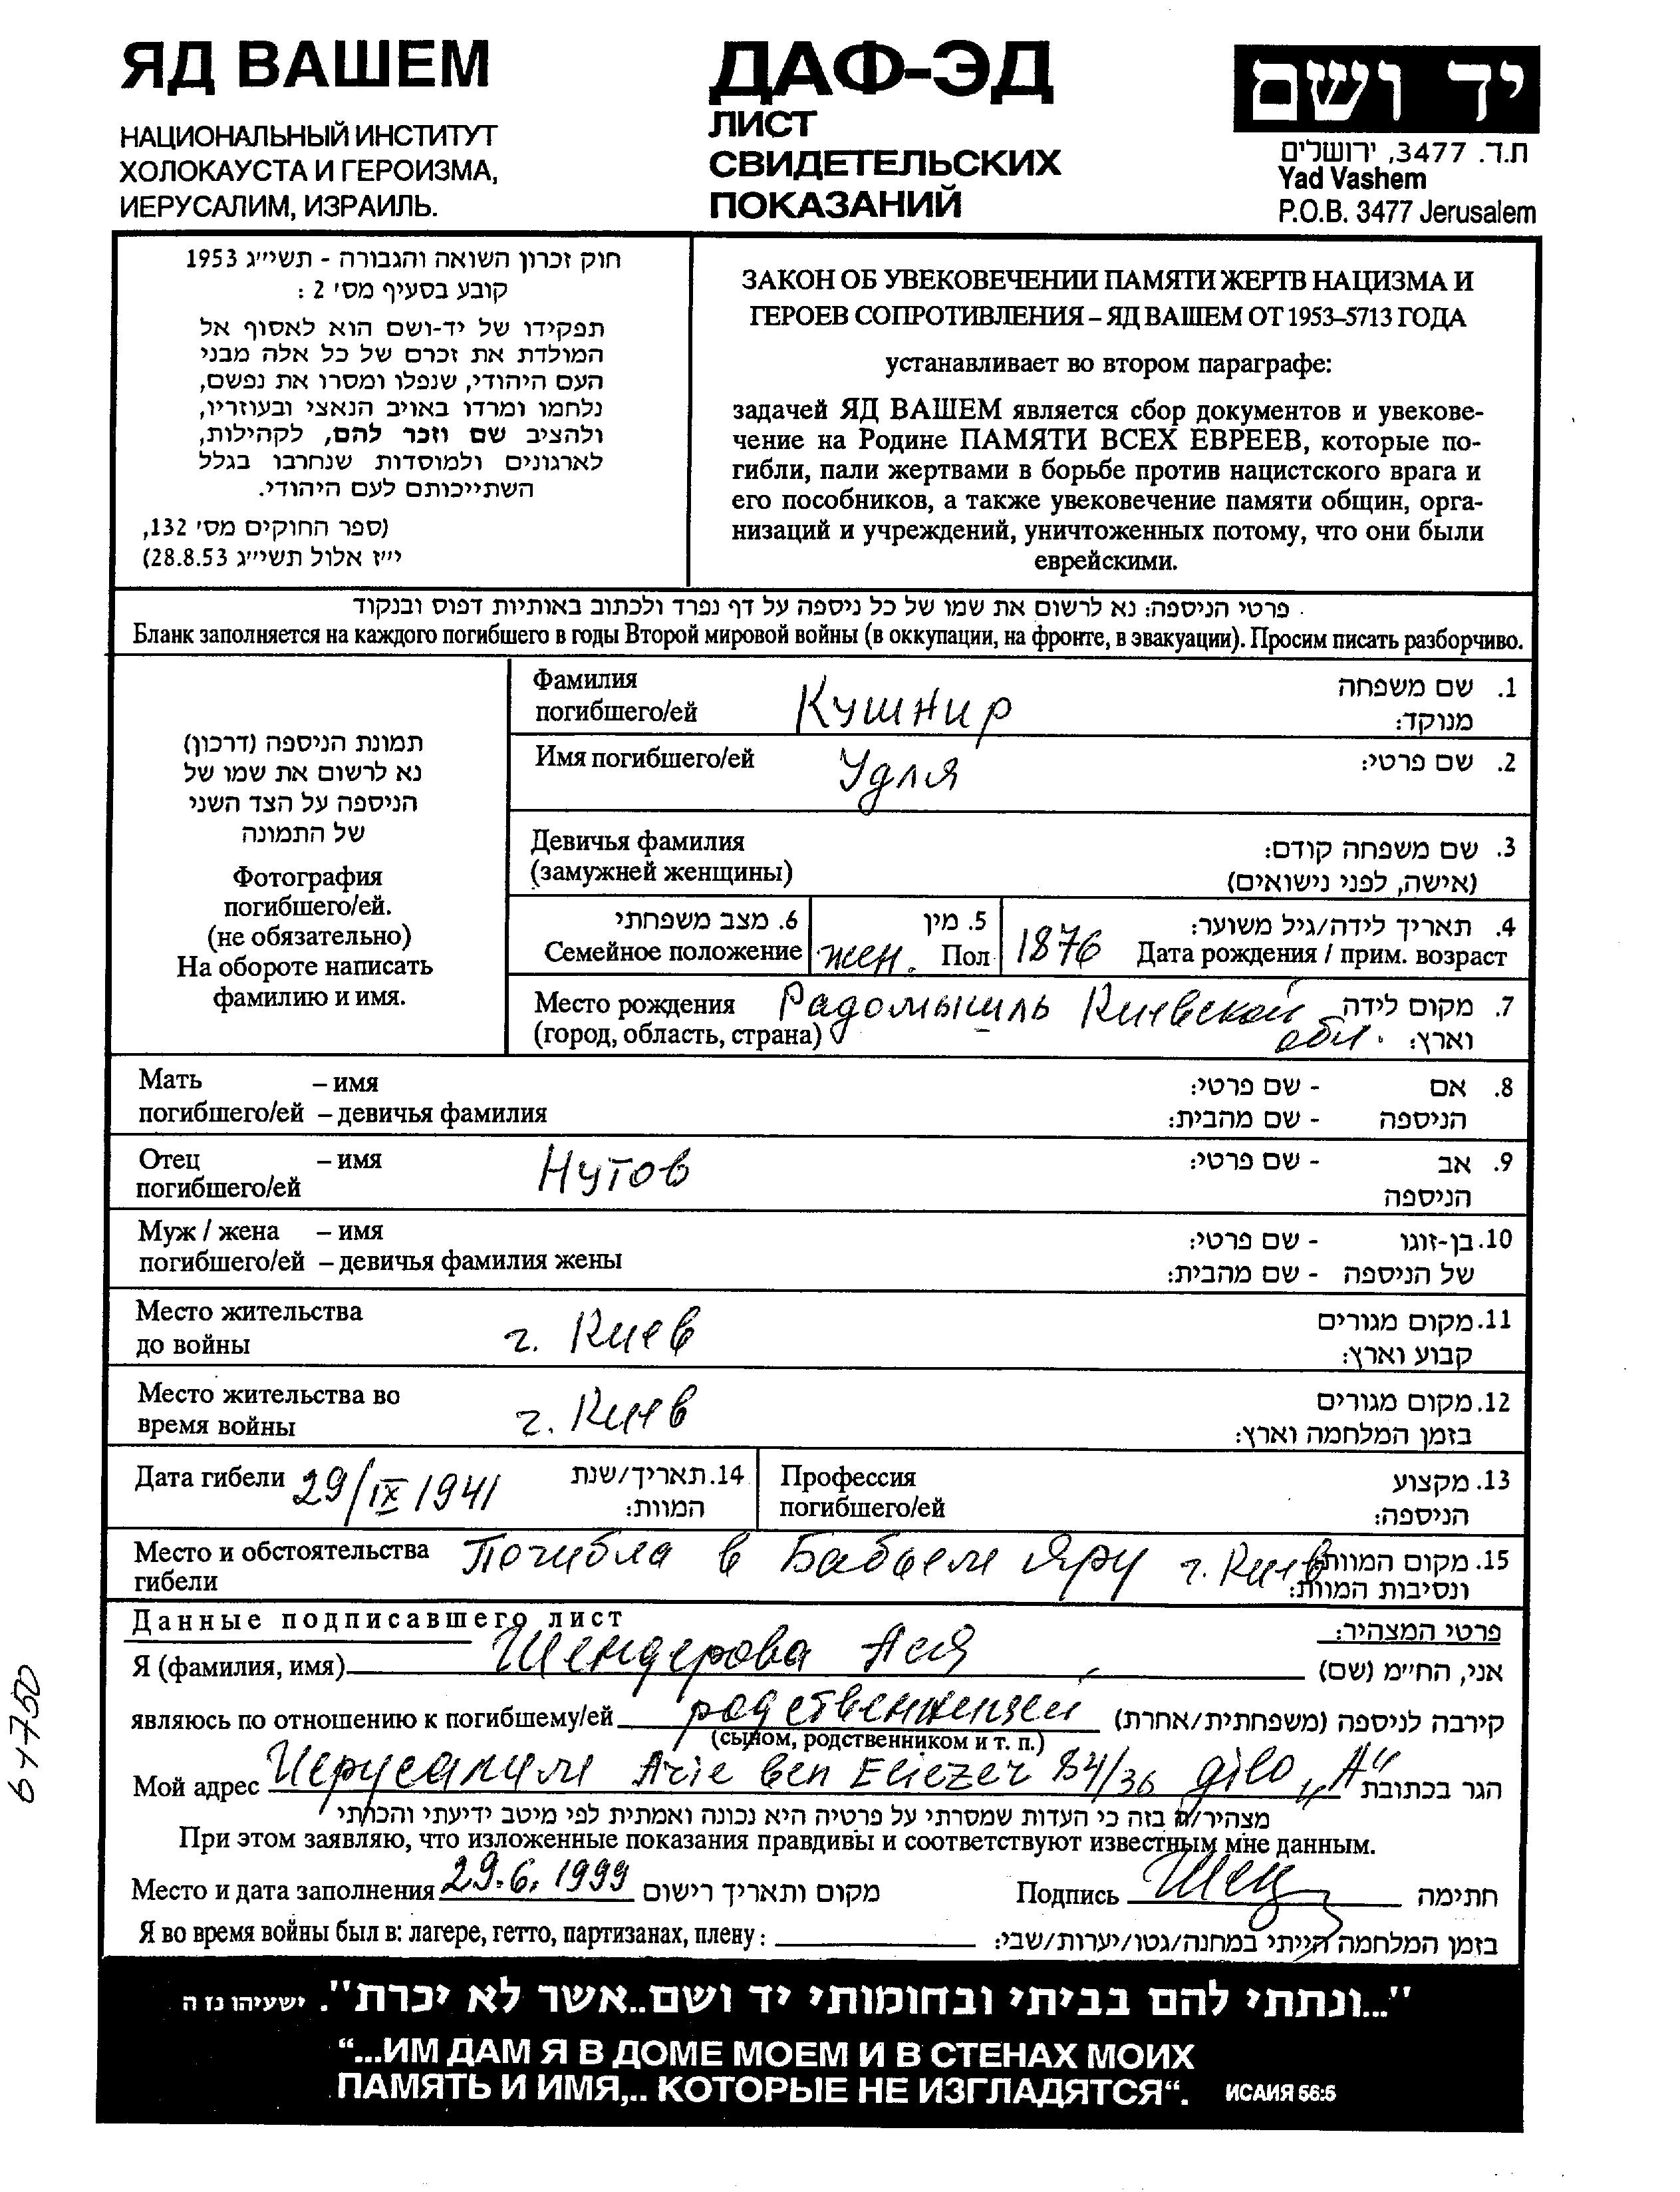 ЯД ВАШЕМ
НАЦИОНАЛЬНЫЙ ИНСТИТУТ
ХОЛОКАУСТА И ГЕРОИЗМА,
ИЕРУСАЛИМ, ИЗРАИЛЬ.
ДАФ-ЭД
ЛИСТ
СВИДЕТЕЛЬСКИХ
ПОКАЗАНИЙ
יד ושם
ת.ד. 3477, ירושלים
Yad Vashem
P.O.B. 3477 Jerusalem
חוק זכרון השואה והגבורה - תשי״ג 1953
קובע בסעיף מס׳ 2 :
תפקידו של יד-ושם הוא לאסוף אל
המולדת את זכרם של כל אלה מבני
העם היהודי, שנפלו ומסרו את נפשם,
נלחמו ומרדו באויב הנאצי ובעוזריו,
ולהציב שם וזכר להם, לקהילות,
לארגונים ולמוסדות שנחרבו בגלל
השתייכותם לעם היהודי.
(ספר החוקים מס׳ 132,
י״ז אלול תשי״ג 28.8.53)
ЗАКОН ОБ УВЕКОВЕЧЕНИИ ПАМЯТИ ЖЕРТВ НАЦИЗМА И
ГЕРОЕВ СОПРОТИВЛЕНИЯ – ЯД ВАШЕМ ОТ 1953–5713 ГОДА
устанавливает во втором параграфе:
задачей ЯД ВАШЕМ является сбор документов и увекове-
чение на Родине ПАМЯТИ ВСЕХ ЕВРЕЕВ, которые по-
гибли, пали жертвами в борьбе против нацистского врага и
его пособников, а также увековечение памяти общин, орга-
низаций и учреждений, уничтоженных потому, что они были
еврейскими.
פרטי הניספה: נא לרשום את שמו של כל ניספה על דף נפרד ולכתוב באותיות דפוס ובנקוד
Бланк заполняется на каждого погибшего в годы Второй мировой войны (в оккупации, на фронте, в эвакуации). Просим писать разборчиво.
תמונת הניספה (דרכון)
נא לרשום את שמו של
הניספה על הצד השני
של התמונה
Фотография
погибшего/ей.
(не обязательно)
На обороте написать
фамилию и имя.
Фамилия Кушнир 1. שם משפחה
погибшего/ей מנוקד:
Имя погибшего/ей Удля 2. שם פרטי:
Девичья фамилия 3. שם משפחה קודם:
(замужней женщины) (אישה, לפני נישואים)
6. מצב משפחתי 5. מין 4. תאריך לידה/גיל משוער:
Семейное положение жен. Пол 1876 Дата рождения / прим. возраст
Место рождения Радомышль Киевской 7. מקום לידה
(город, область, страна) обл. וארץ:
Мать – имя 8. אם - שם פרטי:
погибшего/ей – девичья фамилия הניספה - שם מהבית:
Отец – имя Нутов 9. אב - שם פרטי:
погибшего/ей הניספה
Муж / жена – имя 10. בן-זוגו - שם פרטי:
погибшего/ей – девичья фамилия жены של הניספה - שם מהבית:
Место жительства 11. מקום מגורים
до войны г. Киев קבוע וארץ:
Место жительства во 12. מקום מגורים
время войны г. Киев בזמן המלחמה וארץ:
Дата гибели 29/IX 1941 14. תאריך/שנת המוות:
Профессия 13. מקצוע
погибшего/ей הניספה:
Место и обстоятельства Погибла в Бабьем Яру г. Киев 15. מקום המוות
гибели ונסיבות המוות:
Данные подписавшего лист פרטי המצהיר:
Я (фамилия, имя) Шендерова Ася אני, הח״מ (שם)
являюсь по отношению к погибшему/ей родственницей קירבה לניספה (משפחתית/אחרת)
(сыном, родственником и т. п.)
Мой адрес Иерусалим Arie ben Eliezer 84/36 gilo „A“ הגר בכתובת
מצהיר/ה בזה כי העדות שמסרתי על פרטיה היא נכונה ואמתית לפי מיטב ידיעתי והכרתי
При этом заявляю, что изложенные показания правдивы и соответствуют известным мне данным.
Место и дата заполнения 29.6.1999 מקום ותאריך רישום Подпись חתימה
Я во время войны был в: лагере, гетто, партизанах, плену: בזמן המלחמה הייתי במחנה/גטו/יערות/שבי:
"...ונתתי להם בביתי ובחומותי יד ושם..אשר לא יכרת". ישעיהו נז ה
“...ИМ ДАМ Я В ДОМЕ МОЕМ И В СТЕНАХ МОИХ
ПАМЯТЬ И ИМЯ,.. КОТОРЫЕ НЕ ИЗГЛАДЯТСЯ“. ИСАИЯ 56:5